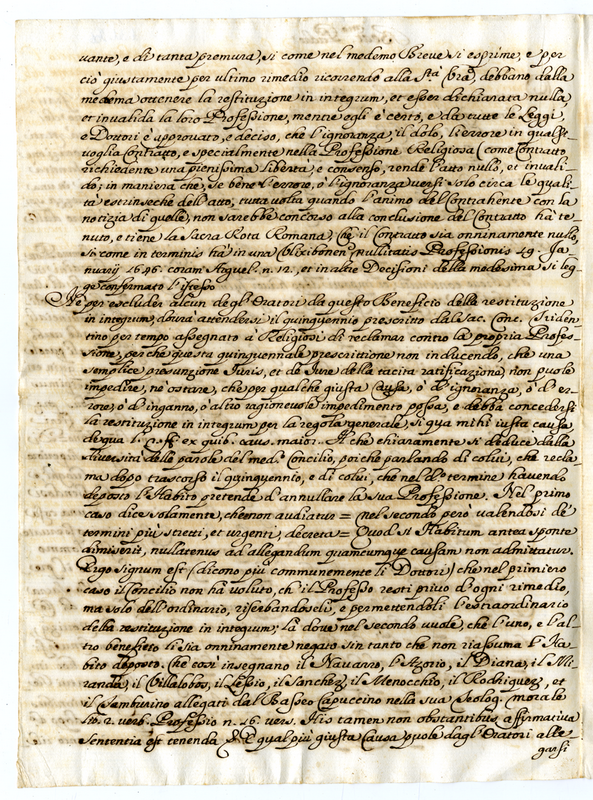 vante, e di tanta premura, si come nel medemo Breve si esprime, e per
ciò giustamente per ultimo rimedio ricorrendo alla Stà Vrã, debbano dalla
medema ottenere la restituzione in integrum, et esser dichiarata nulla
et invalida la loro Professione, mentre egli è certo, e da tutte le Leggi,
e Dottori è approvato, e deciso, che l'ignoranza, il dolo, l'errore in qualsi-
voglia Contratto, e specialmente nella Professione Religiosa (come Contratto
richiedente una pienissima libertà, e consenso, rende l'atto nullo, et invali-
do; in maniera che, se bene l'errore, ò l'ignoranza versi solo circa le quali-
tà estrinseche dell'atto, tutta volta quando l'animo del Contrahente con la
notizia di quelle, non sarebbe concorso alla conclusione del Contratto hà te-
nuto, e tiene la Sacra Rota Romana, che il Contratto sia onninamente nullo,
si come in terminis hà in una Ulixibonen. nullitatis Professionis 19. Ja-
nuarij 1646. coram n. 12. et in altre Decisioni della medesima si leg-
ge confirmato l'istesso
Ne per escluder alcun degl'Oratori da questo Beneficio della restituzione
in integrum, dovrà attendersi il quinquennio prescritto dal Sac. Conc. Triden-
tino per tempo assegnato à Religiosi di reclamar contro la propria Profes-
sione, perche questa quinquennale prescrittione non inducendo, che una
semplice presunzione Iuris, et de Iure della tacita ratificazione, non puole
impedire, ne ostare, che per qualche giusta Causa, ò d'ignoranza, ò d'er-
rore, ò d'inganno, ò altro ragionevole impedimento possa, e debba concedersi
la restituzione in integrum per la regola generale si qua mihi iusta causa
de qua l. ff. ex quib. caus. maior. Il che chiaramente si deduce dalla
diversità delle parole del med.o Concilio, poiche parlando di colui, che recla-
ma dopo trascorso il quinquennio, e di colui, che nel d.o termine havendo
deposto l'Habito pretende d'annullare la sua Professione. Nel primo
caso dice solamente, che non audiatur = nel secondo però valendosi de
termini più stretti, et urgenti, decreta = Quod si Habitum antea sponte
dimiserit, nullatenus ad allegandum quamcunque causam non admittatur.
Ergo signum est (dicono più communemente li Dottori) che nel primiero
caso il Concilio non hà voluto, ch'il Professo resti privo d'ogni rimedio,
ma solo dell'ordinario, riserbandoseli, e permettendoli l'estraordinario
della restituzione in integrum; là dove nel secondo vuole, che l'uno, e l'al-
tro benefitio li sia onninamente negato sin tanto che non riassuma l'Ha-
bito deposto. Che così insegnano il Navarro, l'Azorio, il Diana, il Mi-
randa, il Villalobos, il Lessio, il Sanchez, il Menocchio, il Rodriquez, et
il Tamburino allegati dal Basseo Capuccino nella sua Teolog. morale
lit. 2. verb. Professio n. 16. vers. His tamen non obstantibus affirmativa
sententia est tenenda. E qual più giusta Causa puole dagl'Oratori alle-
garsi